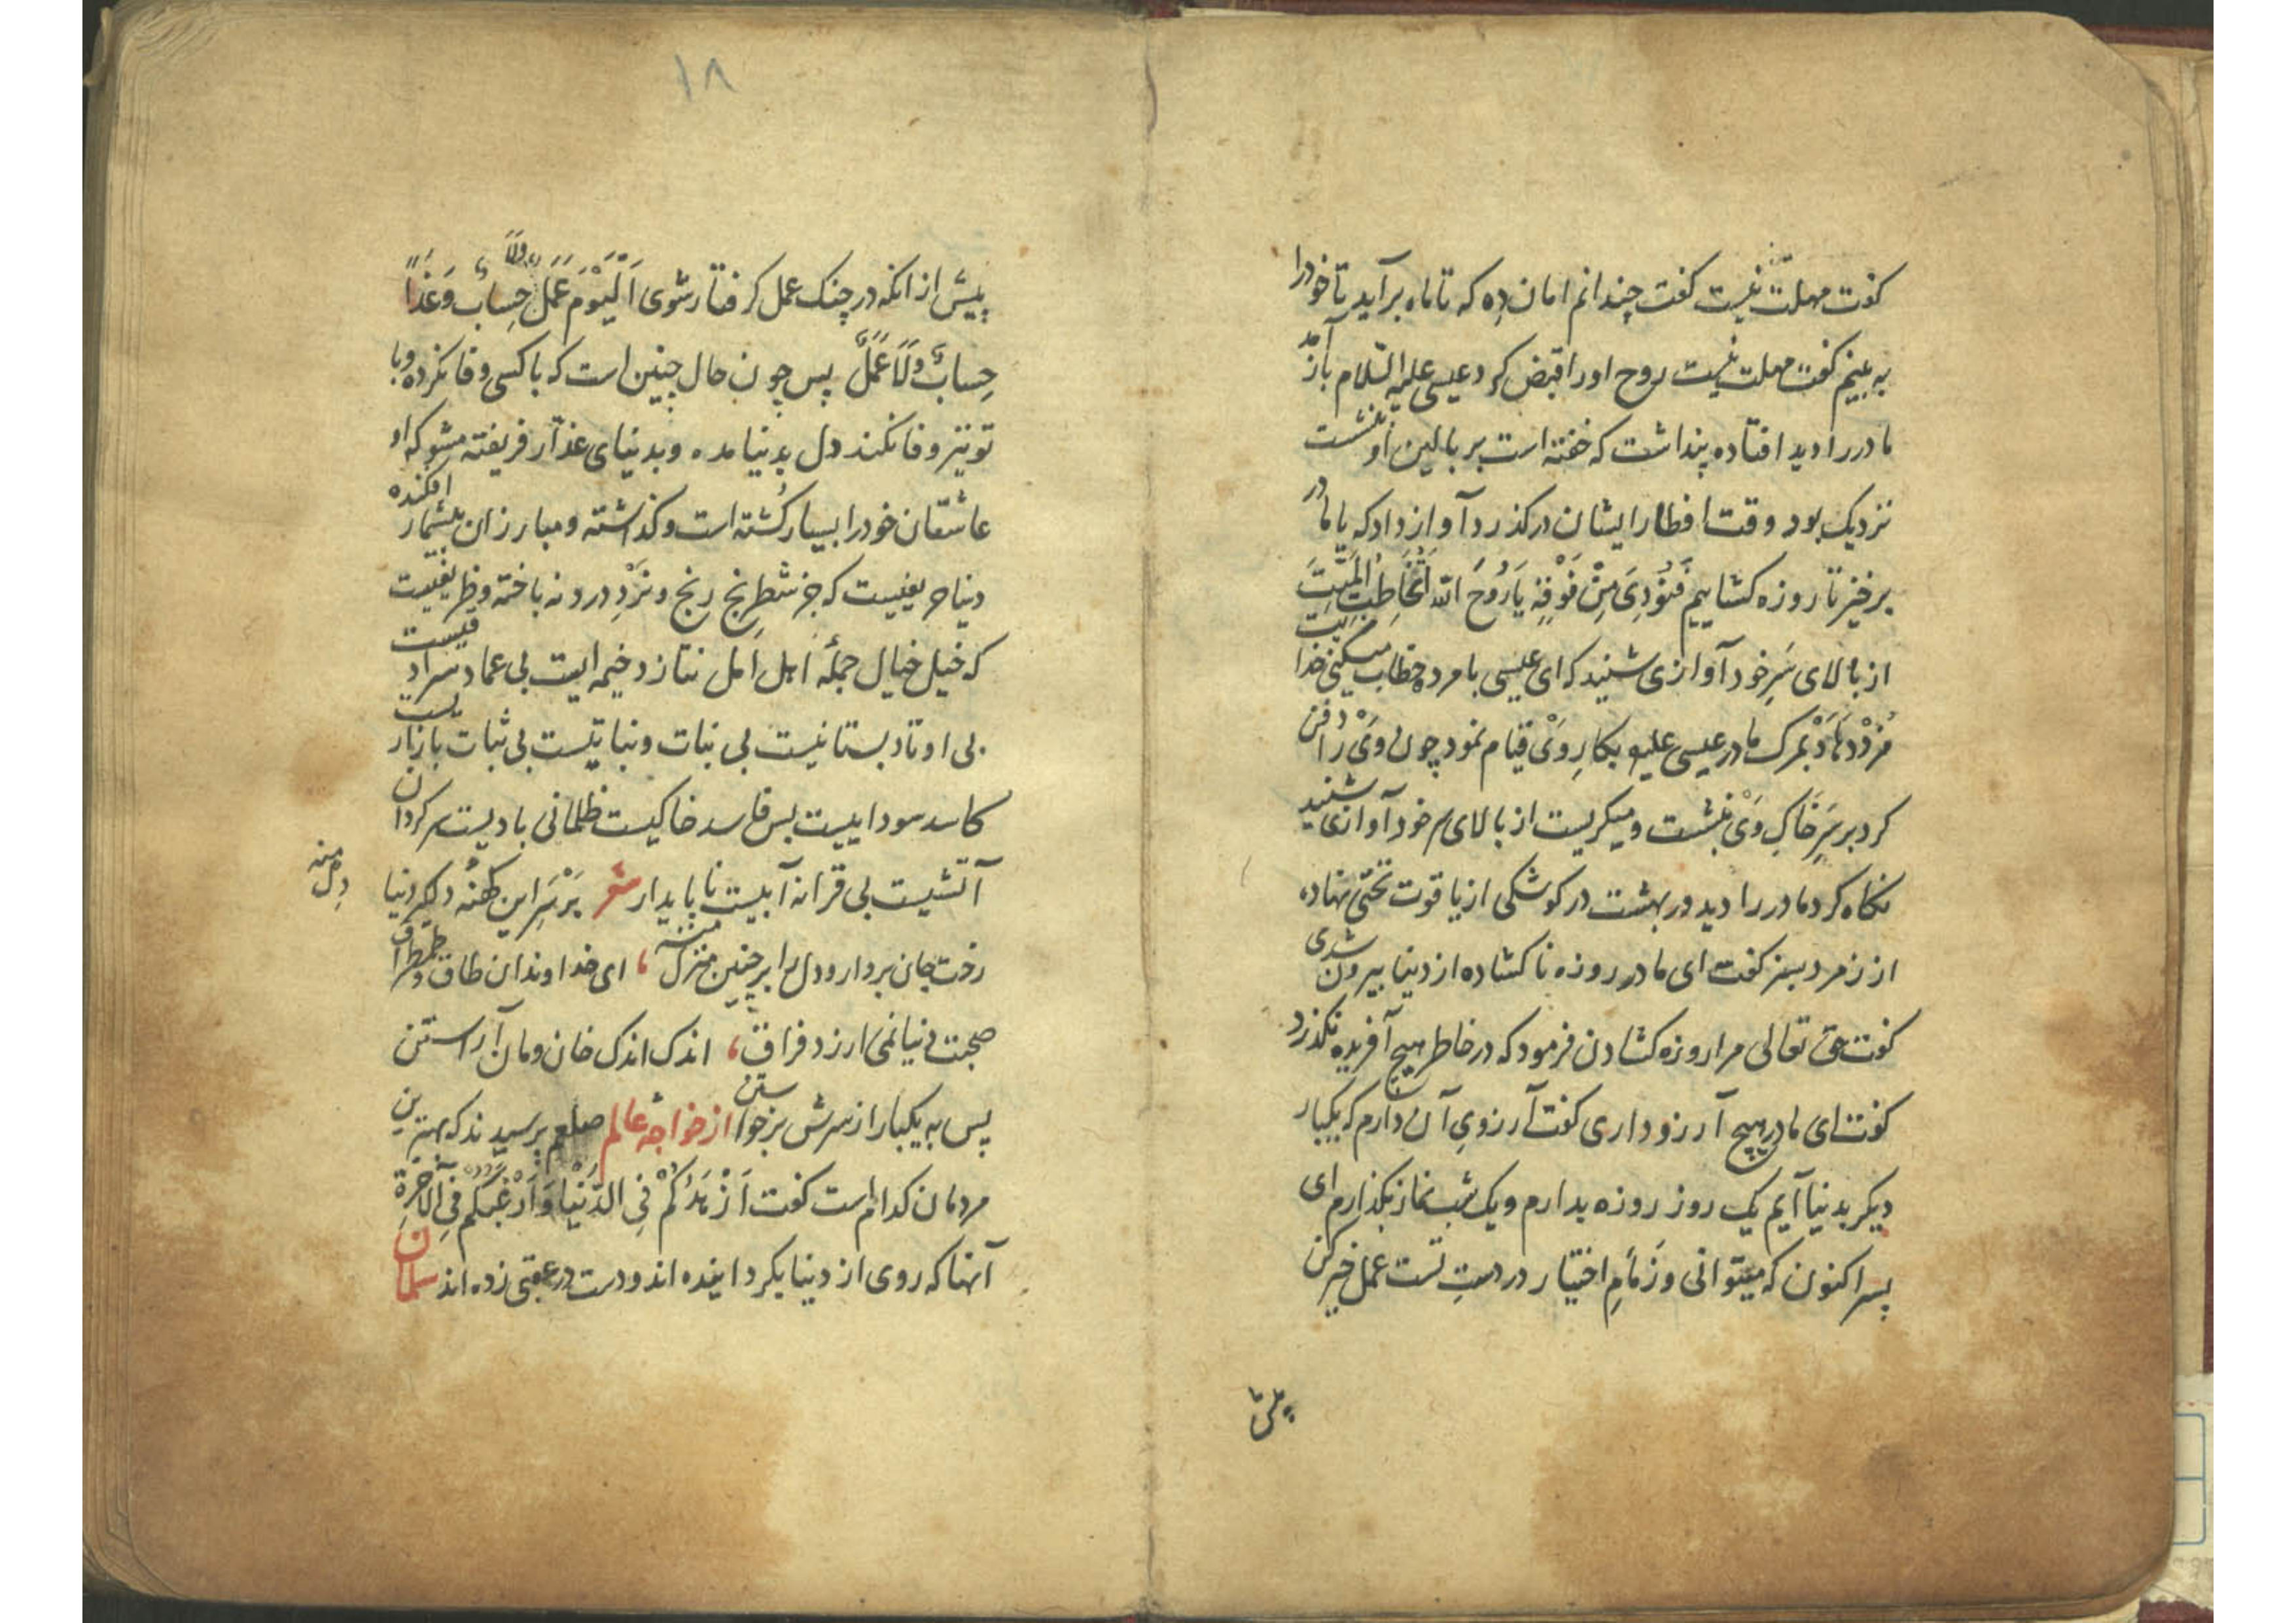 کفت مهلت نیست کفت چندانم امان ده که تا ماه برآید تا خودرا
به بینم کفت مهلت نیست روح اورا قبض کرد عیسی علیه السّلام بازآمد
مادررا دید افتاده پنداشت که خفته است بر بالین او بنشست
نزدیک بود وقت افطار ایشان درکذرد آواز داد که یا مادر
برخیز تا روزه کشاییم فَنُوْدِیَ مِنْ فَوْقِهِ یَا رُوْحَ اللّه اَتُخَاطِبُ المَیِّتَ
از بالای سَرِ خود آوازی شنید که ای عیسی با مرده خطاب میکنی خدا
مُزْدْ دَهَادْ بمرک مادر عیسی علیه بکارِ وَیْ قیام نمود چون ویْ را دفن
کرد بر سَرِ خَاکِ وَیْ بنشست و میکریست از بالای سر خود آوازی شنید
نکاه کرد مادر را دید در بهشت در کوشکی از یاقوت تختی نهاده
از زمرد سبز کفت ای مادر روزه ناکشاده از دنیا بیرون شدی
کفت حق تعالی مرا روزه کشادن فرمود که در خاطر هیچ آفریده نکذرد
کفت ای مادر هیچ آرزو داری کفت آرزویِ آن دارم که یکبار
دیکر بدنیا آیم یک روز روزه بدارم و یک شب نماز بکذارم ای
پسر اکنون که میتوانی و زَمامِ اختیار در دستِ تست عمل خیر کن
پیش
۱۸
پیش از انکه در چنک عمل کرفتار شوی اَلْیَوْمَ عَمَلٌ وَلَا حِسابٌ وَغَدًا
حِسابٌ وَلَا عَمَلٌ پس چون حال چنین است که با کسی وفا نکرده وبا
تو نیز وفا نکند دل بدنیا مده وبدنیای غدّار فریفته مشو که او
عاشقان خودرا بسیار کُشته است وکذاشته ومبارزان بیشمار افکنده
دنیا حریفیست که جز شطرنج رنج ونَرْدِ درد نه باخته وظریفیست
که خیل خیال جملهٔ اهل امل نتازد خیمه ایست بی عماد سرادقیست
بی اوتاد بستانیست بی نبات ونباتیست بی ثبات بازاریست
کاسد سوداییست بس فاسد خاکیست ظلمانی بادیست سرکردان
آتشیست بی قرار نه آبیست ناپایدار شعر بَرْسَرِ این کهنهٔ دیکر دنیا دل منه
رخت جان بردار ودل را بر چنین منزل منه ای خداوندان طاق وطمطراق
صحبت دنیا نمی ارزد فراق اندک اندک خان ومان آراستن
پس به یکبار از سرش برخواستن از خواجهٔ عالم صلعم پرسیدند که بهترین
مردمان کدام است کفت اَزْهَدُکُمْ فِی الدُنْیَا وَاَرْغَبُکُمْ فِی الْآخِرَةِ
آنها که روی از دنیا بکردانیده اند ودست در عقبی زده اند سلمان